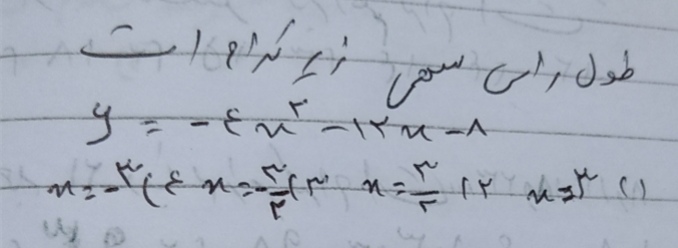 طول راس سهمی زیر کدام است
y = -۴x² -۱۲x -۸
۱) x=۳   ۲) x=۳/۲   ۳) x=-۳/۲   ۴) x=-۳